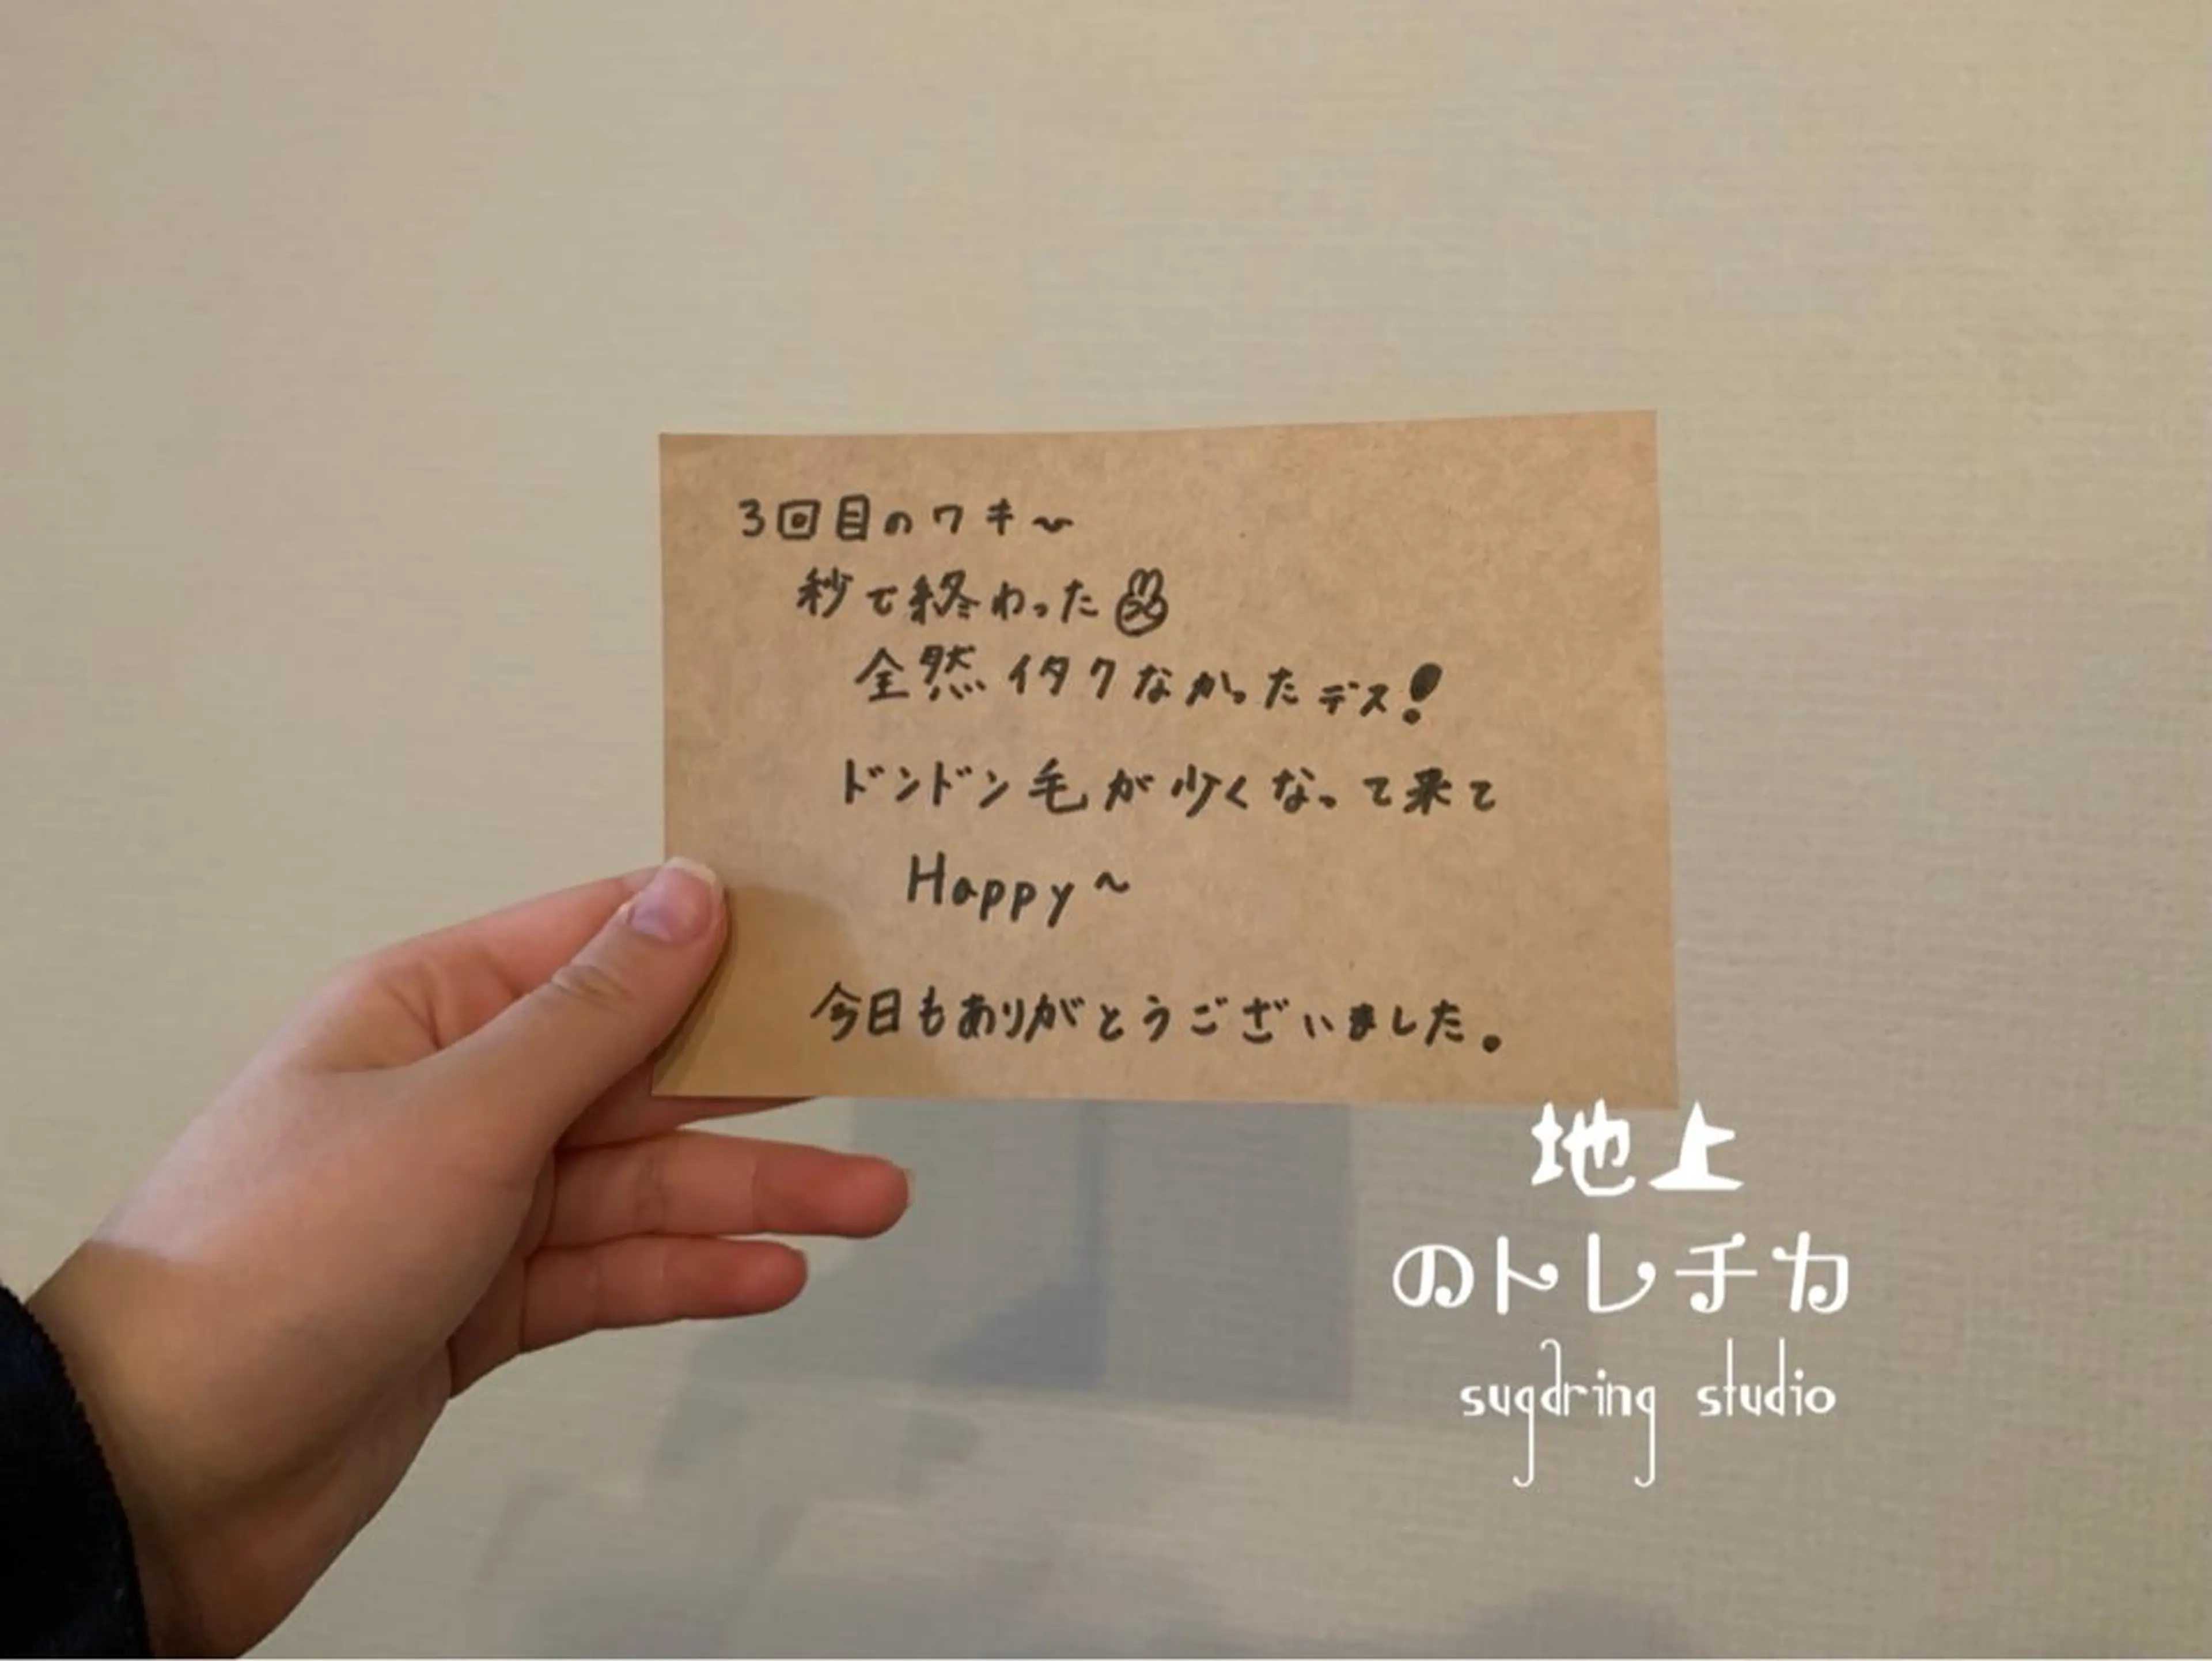 3回目のワキ〜
秒で終わった
全然イタクなかったデス!
ドンドン毛が少くなって来て
Happy~
今日もありがとうございました。
地上
のトレチカ
sugaring studio